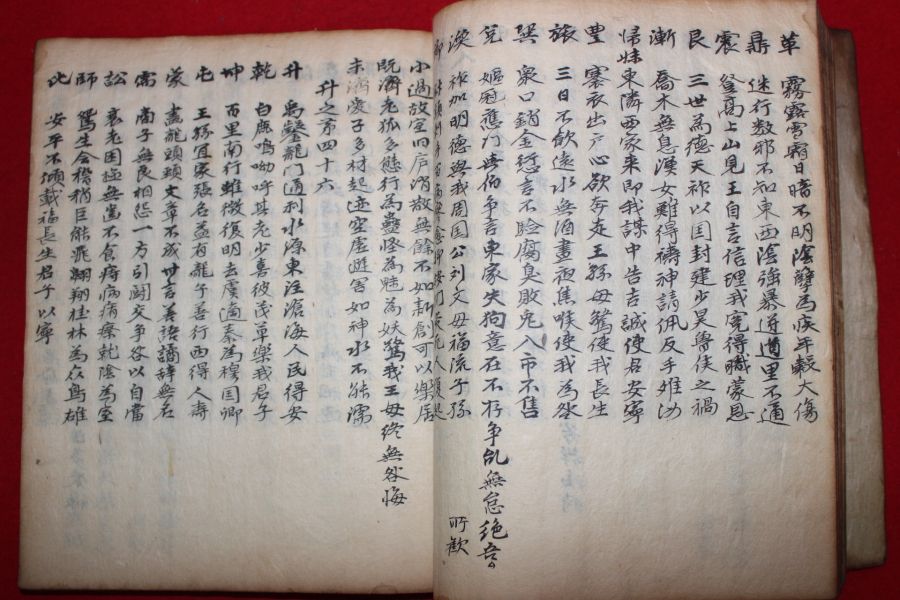 革 霧露雪霜日暗不明陰孽為疾年穀大傷
鼎 迷行数邪不知東西陰強暴逆道里不通
震 登高上山見王自言信理我寃得職蒙恩
艮 三世為德天祚以国封建少昊魯侯之禍
漸 喬木無息漢女難得禱神請佩反手难
帰妹 東隣西家来即我謀中告吉誠使君安寧
豊 褰衣出戶心欲奔走王孫母驚使我長生
旅 三日不飲遠水無酒晝夜焦喉使我為咎
巽 衆口銷金愆言不驗腐臭敗兎入市不售
兌 嫗冠應門与伯争言東家失狗意在不存争乱無怠絶吾
所歓
渙 祚加明德與我周国公刘文母福流子孫
小過故室旧庐消散無餘不如新創可以樂居
既濟老狐多態行為蠱怪為魅為妖驚我王母終無咎悔
未濟愛子多材起迹空虚避害如神水不能濡
升之第四十六
升 禹鑿龍門通利水源東注滄海人民得安
乾 白鹿鳴呦呼其老少喜彼茂草樂我君子
坤 百里南行雖微復明去虞適秦為穆国卿
屯 王孫宜家張名益有龍子善行西得人壽
蒙 畫龍頭頸文章不成世言善語譎辞無名
需 商子無良相怨一方引鬪交争咎以自當
訟 衰老困極無不食痔病痟瘵乾陰為室
師 鴛生会稽稍巨能飛翺翔桂林為衆鳥雄
比 安平不傾載福長生君子以寧